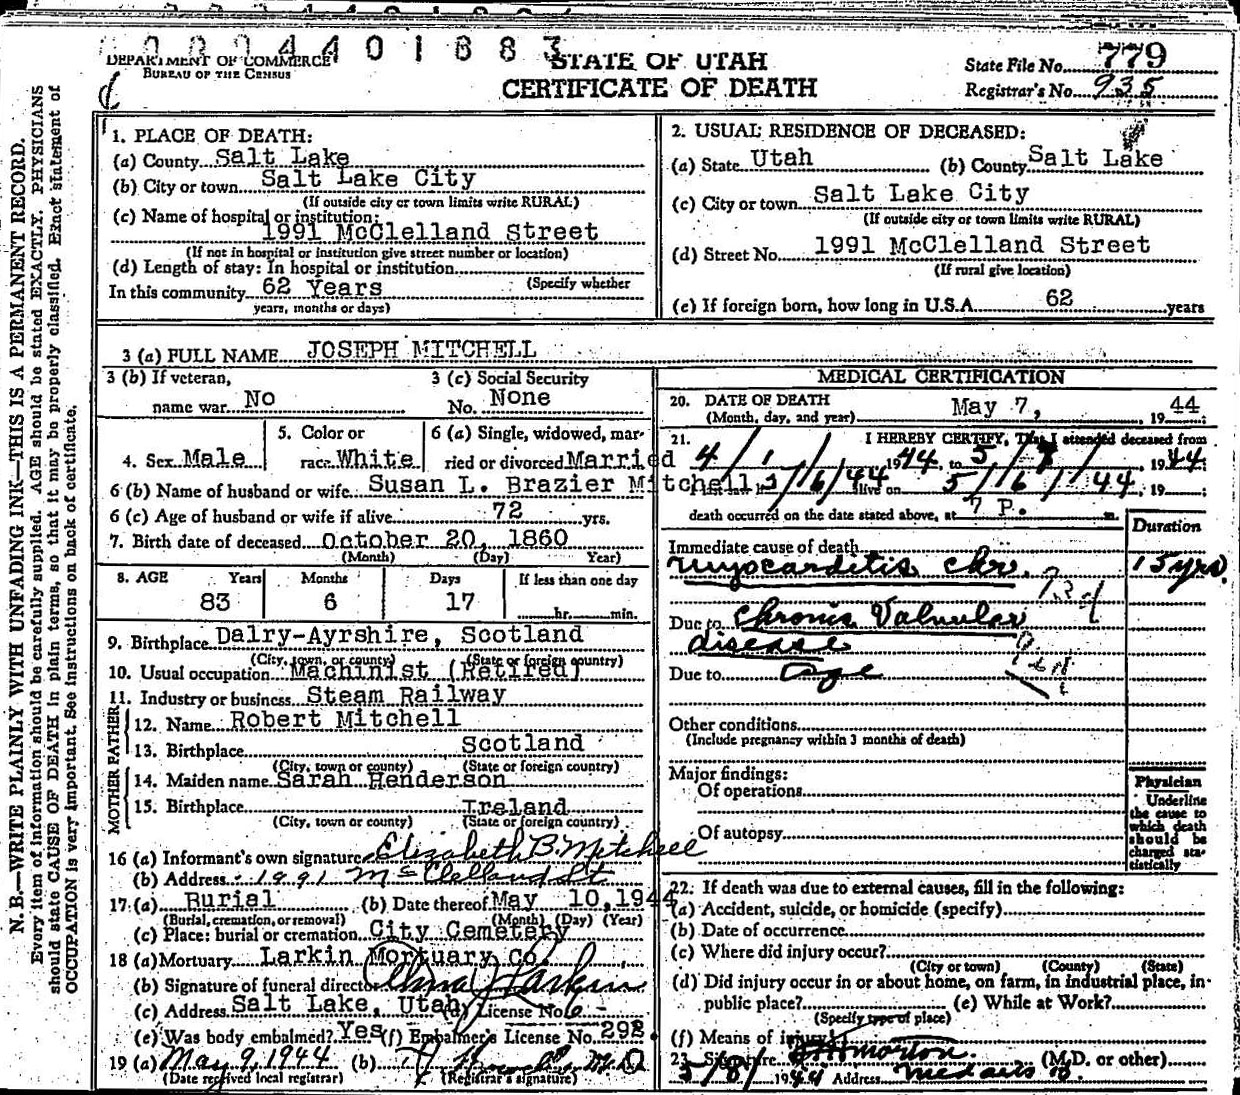 0 0 0 4 4 0 1 6 8 3
DEPARTMENT OF COMMERCE
BUREAU OF THE CENSUS
STATE OF UTAH
CERTIFICATE OF DEATH
State File No. 779
Registrar's No. 935
N. B.—WRITE PLAINLY WITH UNFADING INK—THIS IS A PERMANENT RECORD.
Every item of information should be carefully supplied. AGE should be stated EXACTLY. PHYSICIANS
should state CAUSE OF DEATH in plain terms, so that it may be properly classified. Exact statement of
OCCUPATION is very important. See instructions on back of certificate.
1. PLACE OF DEATH:
(a) County Salt Lake
(b) City or town Salt Lake City
(If outside city or town limits write RURAL)
(c) Name of hospital or institution:
1991 McClelland Street
(If not in hospital or institution give street number or location)
(d) Length of stay: In hospital or institution
(Specify whether
In this community 62 Years
years, months or days)
2. USUAL RESIDENCE OF DECEASED:
(a) State Utah (b) County Salt Lake
(c) City or town Salt Lake City
(If outside city or town limits write RURAL)
(d) Street No. 1991 McClelland Street
(If rural give location)
(e) If foreign born, how long in U.S.A. 62 years
3 (a) FULL NAME JOSEPH MITCHELL
3 (b) If veteran, name war No
3 (c) Social Security No. None
4. Sex Male
5. Color or race White
6 (a) Single, widowed, married or divorced Married
6 (b) Name of husband or wife Susan L. Brazier Mitchell
6 (c) Age of husband or wife if alive 72 yrs.
7. Birth date of deceased October 20, 1860
(Month) (Day) Year)
8. AGE Years Months Days If less than one day
83 6 17 hr. min.
9. Birthplace Dalry-Ayrshire, Scotland
(City, town, or county) (State or foreign country)
10. Usual occupation Machinist (Retired)
11. Industry or business Steam Railway
FATHER
12. Name Robert Mitchell
13. Birthplace Scotland
(City, town or county) (State or foreign country)
MOTHER
14. Maiden name Sarah Henderson
15. Birthplace Ireland
(City, town or county) (State or foreign country)
16 (a) Informant's own signature Elizabeth B. Mitchell
(b) Address 1991 McClelland St
17. (a) Burial (b) Date thereof May 10, 1944
(Burial, cremation, or removal) (Month) (Day) (Year)
(c) Place: burial or cremation City Cemetery
18 (a) Mortuary Larkin Mortuary Co.
(b) Signature of funeral director Alma J Larkin
(c) Address Salt Lake, Utah (d) License No. 6
(e) Was body embalmed? Yes (f) Embalmer's License No. 292.
19 (a) May 9, 1944 (b) M.D
(Date received local registrar) (Registrar's signature)
MEDICAL CERTIFICATION
20. DATE OF DEATH
(Month, day, and year) May 7, 1944
21. I HEREBY CERTIFY, That I attended deceased from
4/1/1944, to 5/7/1944
alive on 5/6/44, 19
death occurred on the date stated above, at 7 P. m.
Duration
Immediate cause of death
Myocarditis chr. 15 yrs.
Due to Chronic Valvular
disease
Due to Age
Other conditions
(Include pregnancy within 3 months of death)
Major findings:
Of operations
Of autopsy
Physician
Underline
the cause to
which death
should be
charged sta-
tistically
22. If death was due to external causes, fill in the following:
(a) Accident, suicide, or homicide (specify)
(b) Date of occurrence
(c) Where did injury occur?
(City or town) (County) (State)
(d) Did injury occur in or about home, on farm, in industrial place, in
public place? (e) While at Work?
(Specify type of place)
(f) Means of injury
23. Signature Morton. (M.D. or other)
5/8/1944 Address Med arts B.